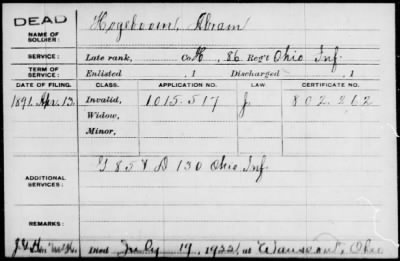 DEAD
NAME OF SOLDIER: Hogeboom, Abram
SERVICE: Late rank, Co. H, 86 Reg't Ohio Inf.
TERM OF SERVICE: Enlisted , 1 Discharged , 1
DATE OF FILING. CLASS. APPLICATION NO. CERTIFICATE NO.
1891, Apr. 13. Invalid, 1015.517 J. 802.262
Widow,
Minor,
ADDITIONAL SERVICES: D 130 Ohio Inf.
REMARKS:
Died July 19, at Wauseon, Ohio